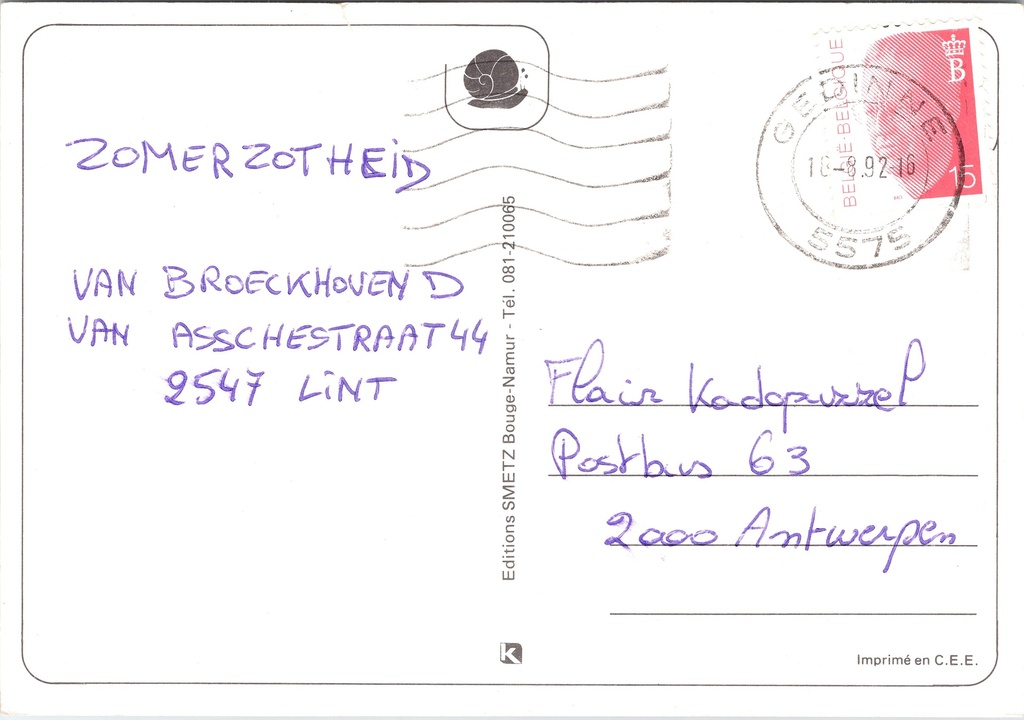 ZOMERZOTHEID
VAN BROECKHOVEN D
VAN ASSCHESTRAAT 44
2547 LINT
Editions SMETZ Bouge-Namur - Tél. 081-210065
BELGIË-BELGIQUE
B
15
GEDINNE
16-8.92 16
5575
Flair Kadopuzzel
Postbus 63
2000 Antwerpen
k
Imprimé en C.E.E.